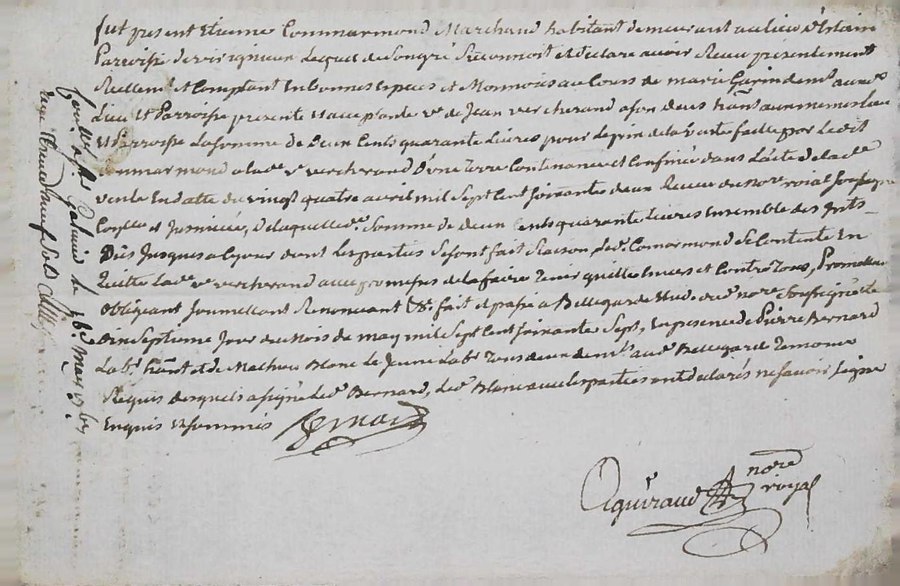 fut present Etienne Commarmond Marchand habitant demeurant au lieu d'
Parroisse de virignieux Lequel de son gré Reconnoit et declare avoir Receu presentement
Reellem.t et Comptant En bonnes Especes et Monnois au Cours de marie Garin dem.t aux.d
Lieu et Parroisse presente et acceptante v.e de Jean vercherand a son deces hãnt au meme Lieu
et Parroisse La somme de deux Cents quarante Livres pour Le prix de la vente faitte par Ledit
Commarmond a lad.e v.e vercherand d'une Terre Contenance et Confinée dans L'acte de lad.e
vente En datte du vingt quatre avril mil sept cent soixante deux Receu du no.re roial soussigné
et Insinuée, De laquelle d.e somme de deux Cents quarante Livres Ensemble des Intr.ts
Dûs Jusques a ce jour dont Les parties se sont fait Raison Led. Comarmond se Contente En
quitte Lad.e v.e vercherand avec promesses de la faire Tenir quitte Envers et Contre Tous, Promettant
obligeant soumettant Renonceant &.a fait et passé a Bellegarde Etude du no.re soussigné Le
dix septieme Jour du Mois de may mil sept cent soixante sept, En presence de Pierre Bernard
Lab.r et de Mathieu Blanc Le Jeune Lab.r Tous deux dem.t aud. Bellegarde Temoins
Requis desquels a signé Led. Bernard, Led. Blanc avec Les parties ont declarés ne savoir signer
Enquis et sommés Bernard
Aguiraud no.re royal
Con.llé a S.t Galmier le may 1767